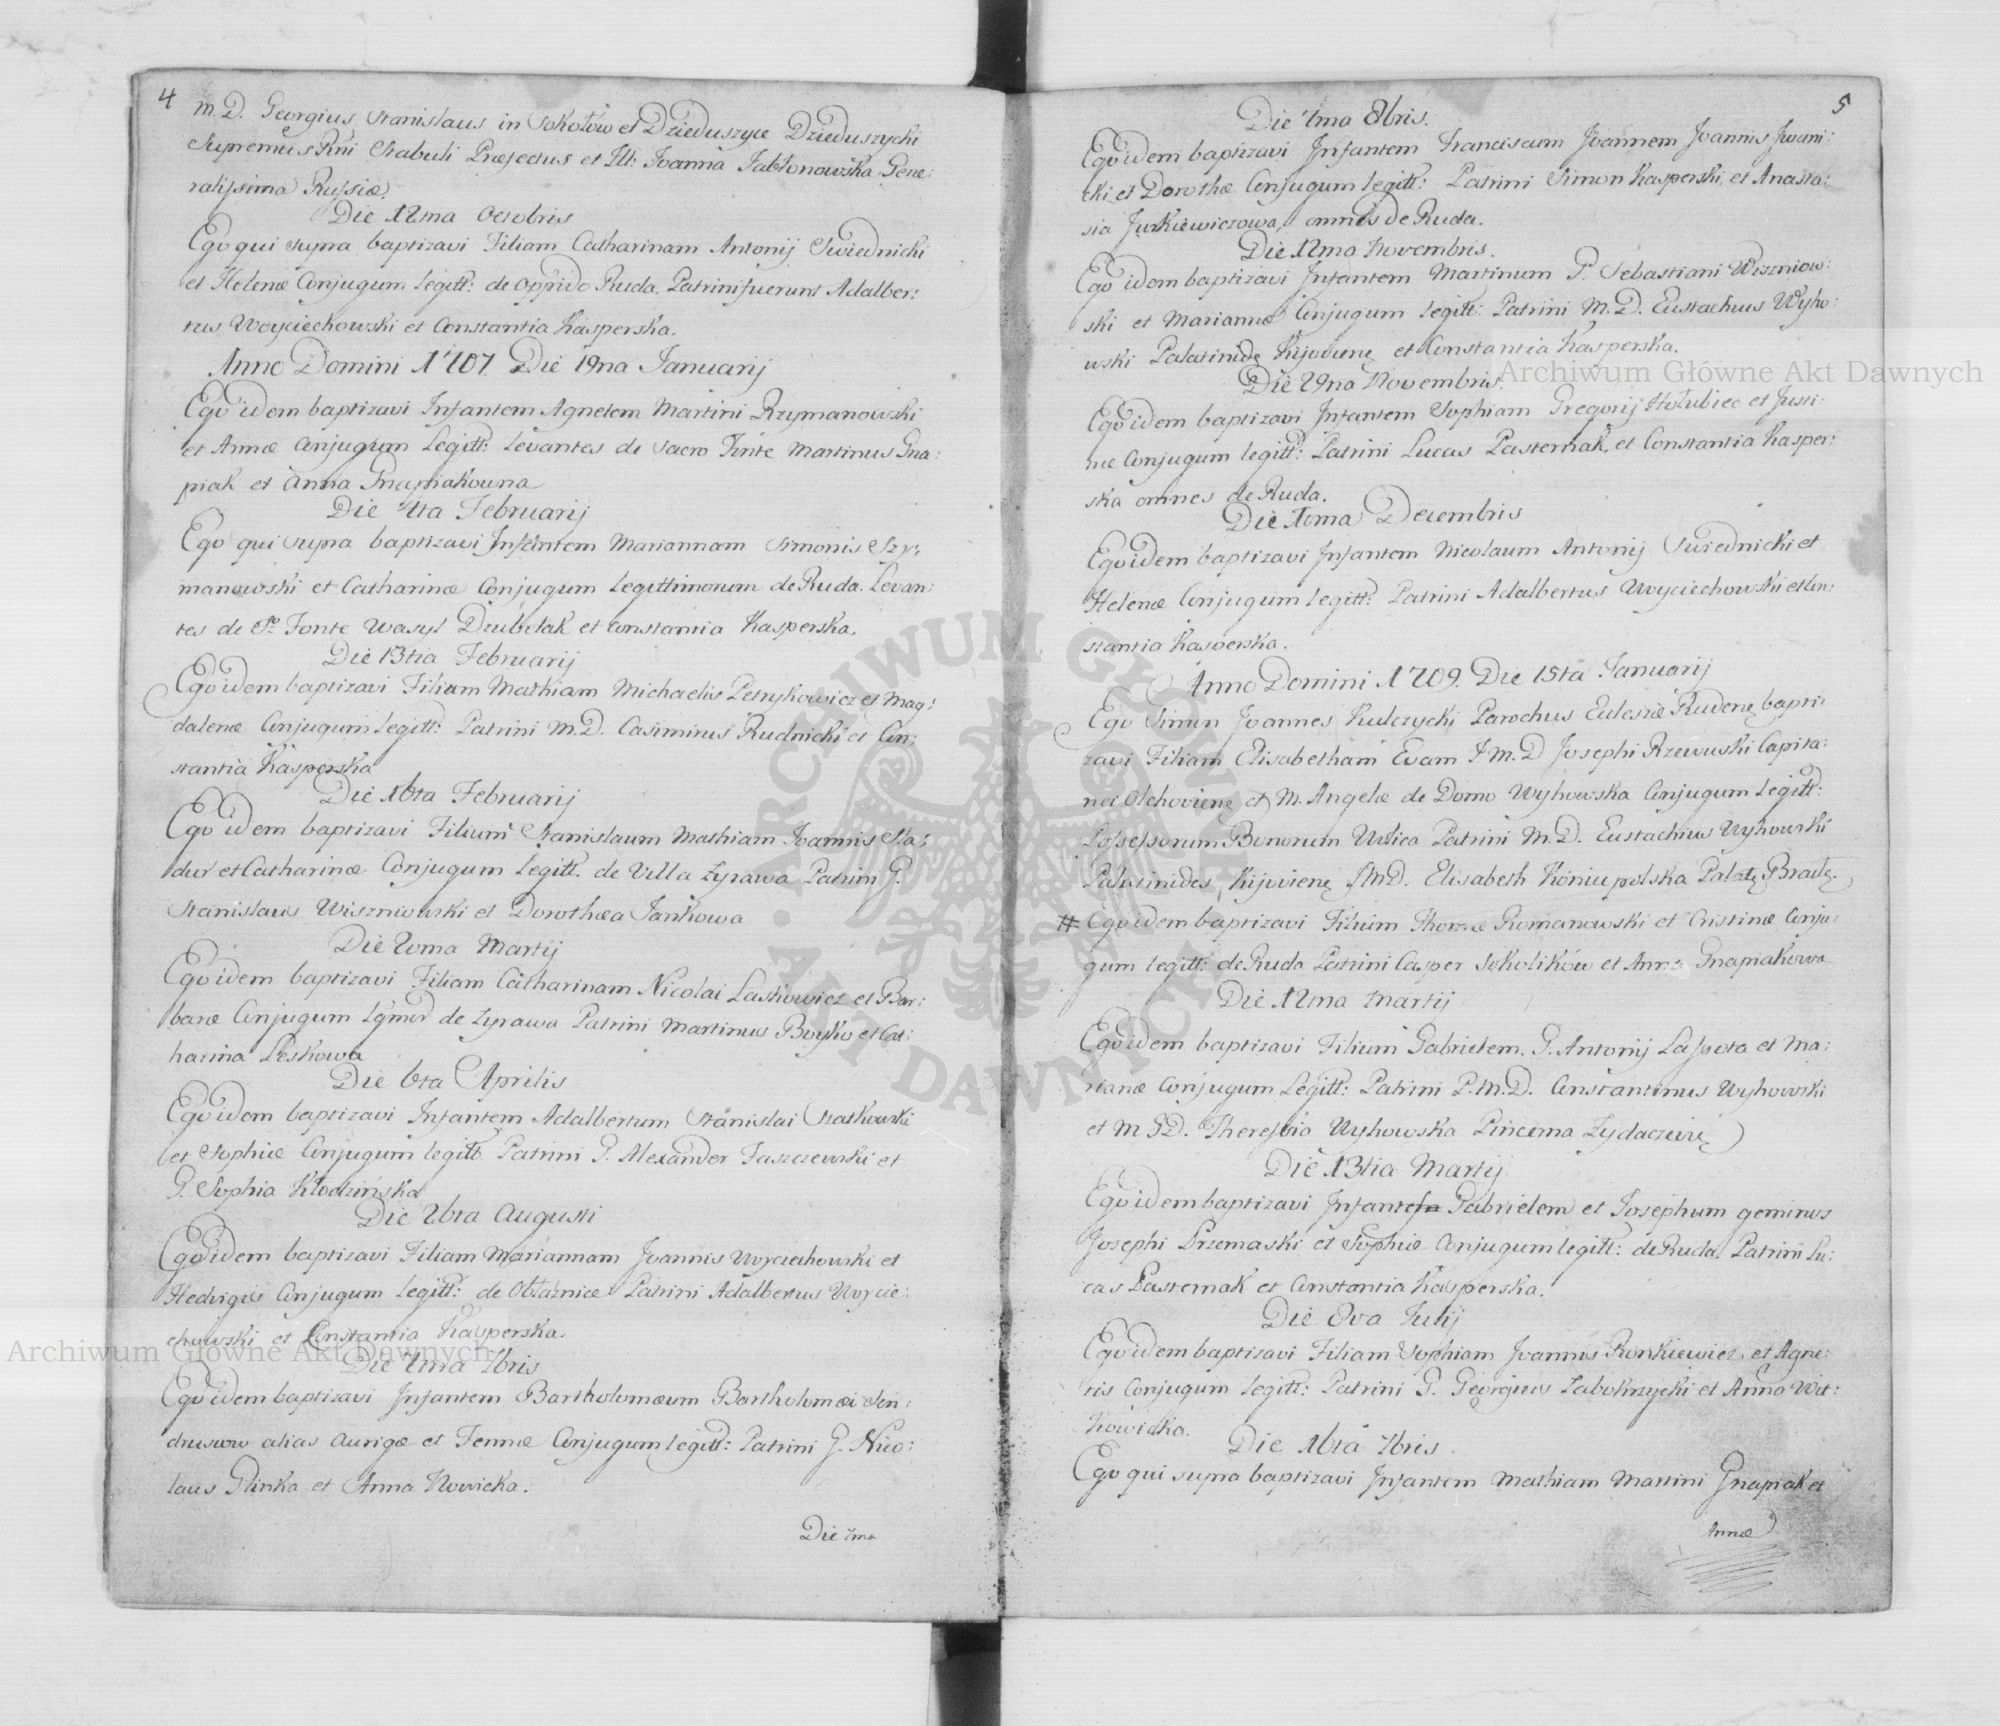 4
M. D. Georgius Stanislaus in Sokołów et Dzieduszyce Dzieduszycki
Supremus Rni Stabuli Præfectus et Ill: Joanna Jabłonowska Gene:
ralissima Russiæ
Die 12ma Octobris
Ego qui supra baptizavi Filiam Catharinam Antonij Swiednicki
et Helenæ Conjugum Legitt: de Oppido Ruda. Patrini fuerunt Adalber:
tus Woyciechowski et Constantia Kasperska.
Anno Domini 1707 Die 19na Januarij
Ego idem baptizavi Infantem Agnetem Martini Rzymanowski
et Annæ Conjugum Legitt: Levantes de Sacro Fonte Martinus Gna:
piak et Anna Gnapiakowna
Die 4ta Februarij
Ego qui supra baptizavi Infantem Mariannam Simonis Szy:
manowski et Catharinæ Conjugum Legittimorum de Ruda. Levan:
tes de So Fonte Wasyl Dziubelak et Constantia Kasperska.
Die 13tia Februarij
Ego idem baptizavi Filium Mathiam Michaelis Petrykowicz et Mag:
dalenæ Conjugum Legitt: Patrini M. D. Casimirus Rudnicki et Con:
stantia Kasperska
Die 16ta Februarij
Ego idem baptizavi Filium Stanislaum Mathiam Joannis
dur et Catharinæ Conjugum Legitt. de Villa Zyrawa Patrini G.
Stanislaus Wiszniowski et Dorothæa Jankowa
Die 20ma Martij
Ego idem baptizavi Filiam Catharinam Nicolai Laskowicz et Bar:
baræ Conjugum de Zyrawa Patrini Martinus Boyko et Cat:
harina Leskowa
Die 6ta Aprilis
Ego idem baptizavi Infantem Adalbertum Stanislai Statkowski
et Sophiæ Conjugum Legitt Patrini G. Alexander Jaszczewski et
G. Sophia Kłodzińska
Die 26ta Augusti
Ego idem baptizavi Filiam Mariannam Joannis Woyciechowski et
Hedvigis Conjugum Legitt: de Obłaznica Patrini Adalbertus Woycie:
chowski et Constantia Kasperska.
Die 2ma 7bris
Ego idem baptizavi Infantem Bartholomæum Bartholomæi Sen:
druszow alias Aurigæ et Fennæ Conjugum Legitt: Patrini G. Nico:
laus Glinka et Anna Nowicka.
Die 7ma
5
Die 7ma 8bris.
Ego idem baptizavi Infantem Franciscum Joannem Joannis Iwani:
cki et Dorothæ Conjugum Legitt: Patrini Simon Kasperski et Anasta:
sia Jurkiewiczowa, omnes de Ruda.
Die 12ma Novembris.
Ego idem baptizavi Infantem Martinum G. Sebastiani Wiszniow:
ski et Mariannæ Conjugum Legitt: Patrini M. D. Eustachius Wyho:
wski Palatinidę Kijovienę et Constantia Kasperska.
Die 29na Novembris.
Ego idem baptizavi Infantem Sophiam Gregorij Hołubiec et Justi:
næ Conjugum legitt: Patrini Lucas Pasternak, et Constantia Kasper:
ska omnes de Ruda.
Die Decembris
Ego idem baptizavi Infantem Nicolaum Antonij Swiednicki et
Helenæ Conjugum legitt: Patrini Adalbertus Woyciechowski et Con:
stantia Kasperska.
Anno Domini 1709. Die 15ta Januarij
Ego Simon Joannes Kulczycki Parochus Eulesiæ Rudenę bapti:
zavi Filiam Elisabetham Evam I M. D Josephi Rzewuski Capita:
nei Olchovienę et M. Angelæ de Domo Wyhowska Conjugum Legitt:
Possessorum Bonorum Patrini M. D. Eustachius Wyhowski
Palatinides Kijovienę D. Elisabeth Koniupolska Palatę Bracłę.
# Ego idem baptizavi Filium Thomæ Romanowski et Cristinæ Conju:
gum legitt: de Ruda Patrini Casper Sokolików et Anna Gnapiakowa
Die 12ma Martij
Ego idem baptizavi Filium Gabrielem G. Antonij Lassota et Ma:
rianæ Conjugum Legitt: Patrini P. M. D. Constantinus Wyhowski
et M D. Theressia Wyhowska Pincerna Zydaczevię
Die 13tia Martij
Ego idem baptizavi Infantem Gabrielem et Josephum geminos
Josephi Przemaski et Sophiæ Conjugum legitt: de Ruda, Patrini Lu:
cas Pasternak et Constantia Kasperska.
Die 8va Julij
Ego idem baptizavi Filiam Sophiam Joannis Ronkiewicz et Agne:
tis Conjugum Legitt: Patrini G. Georgius Zabokrzycki et Anna Wit:
kowicka.
Die 16ta 7bris.
Ego qui supra baptizavi Infantem Mathiam Martini Gnapiak et
Annæ
Archiwum Główne Akt Dawnych
Archiwum Główne Akt Dawnych
ARCHIWUM GŁÓWNE AKT DAWNYCH